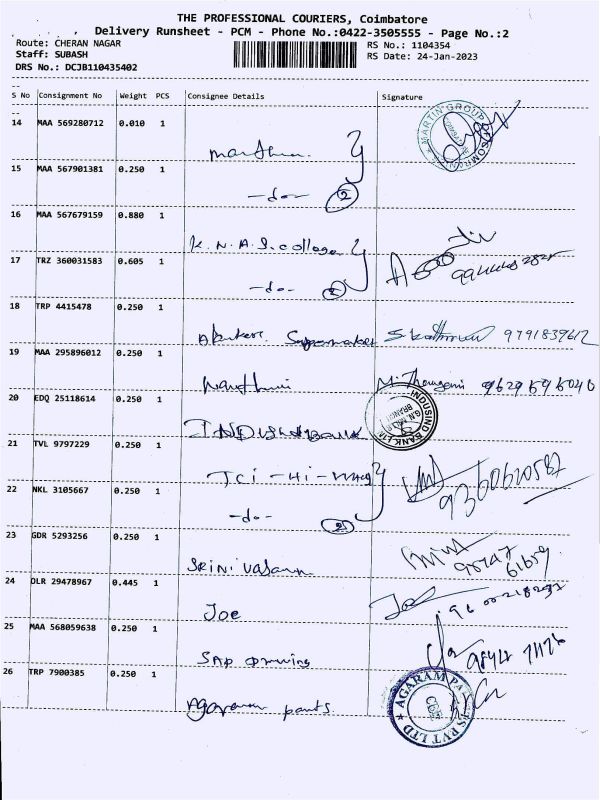 THE PROFESSIONAL COURIERS, Coimbatore
Delivery Runsheet - PCM - Phone No.:0422-3505555 - Page No.:2
Route: CHERAN NAGAR
RS No.: 1104354
Staff: SUBASH
RS Date: 24-Jan-2023
DRS No.: DCJB110435402
S No Consignment No Weight PCS Consignee Details Signature
14 MAA 569280712 0.010 1
MARTIN GROUP OF
15 MAA 567901381 0.250 1
-do- 2
16 MAA 567679159 0.880 1
K.N.A.S. college
17 TRZ 360031583 0.605 1
-do- 2
18 TRP 4415478 0.250 1
9791839612
19 MAA 295896012 0.250 1
M. Thangam 9629595040
20 EDQ 25118614 0.250 1
INDUSIND BANK LTD
G.N. MILLS BRANCH
21 TVL 9797229 0.250 1
TCI-Hi-
9360620587
22 NKL 3105667 0.250 1
-do- 2
23 GDR 5293256 0.250 1
Srinivasan
98947 61659
24 DLR 29478967 0.445 1
Joe Joe
25 MAA 568059638 0.250 1
SAP
26 TRP 7900385 0.250 1
Agaram pants
AGARAM PAINTS PVT LTD
CBE